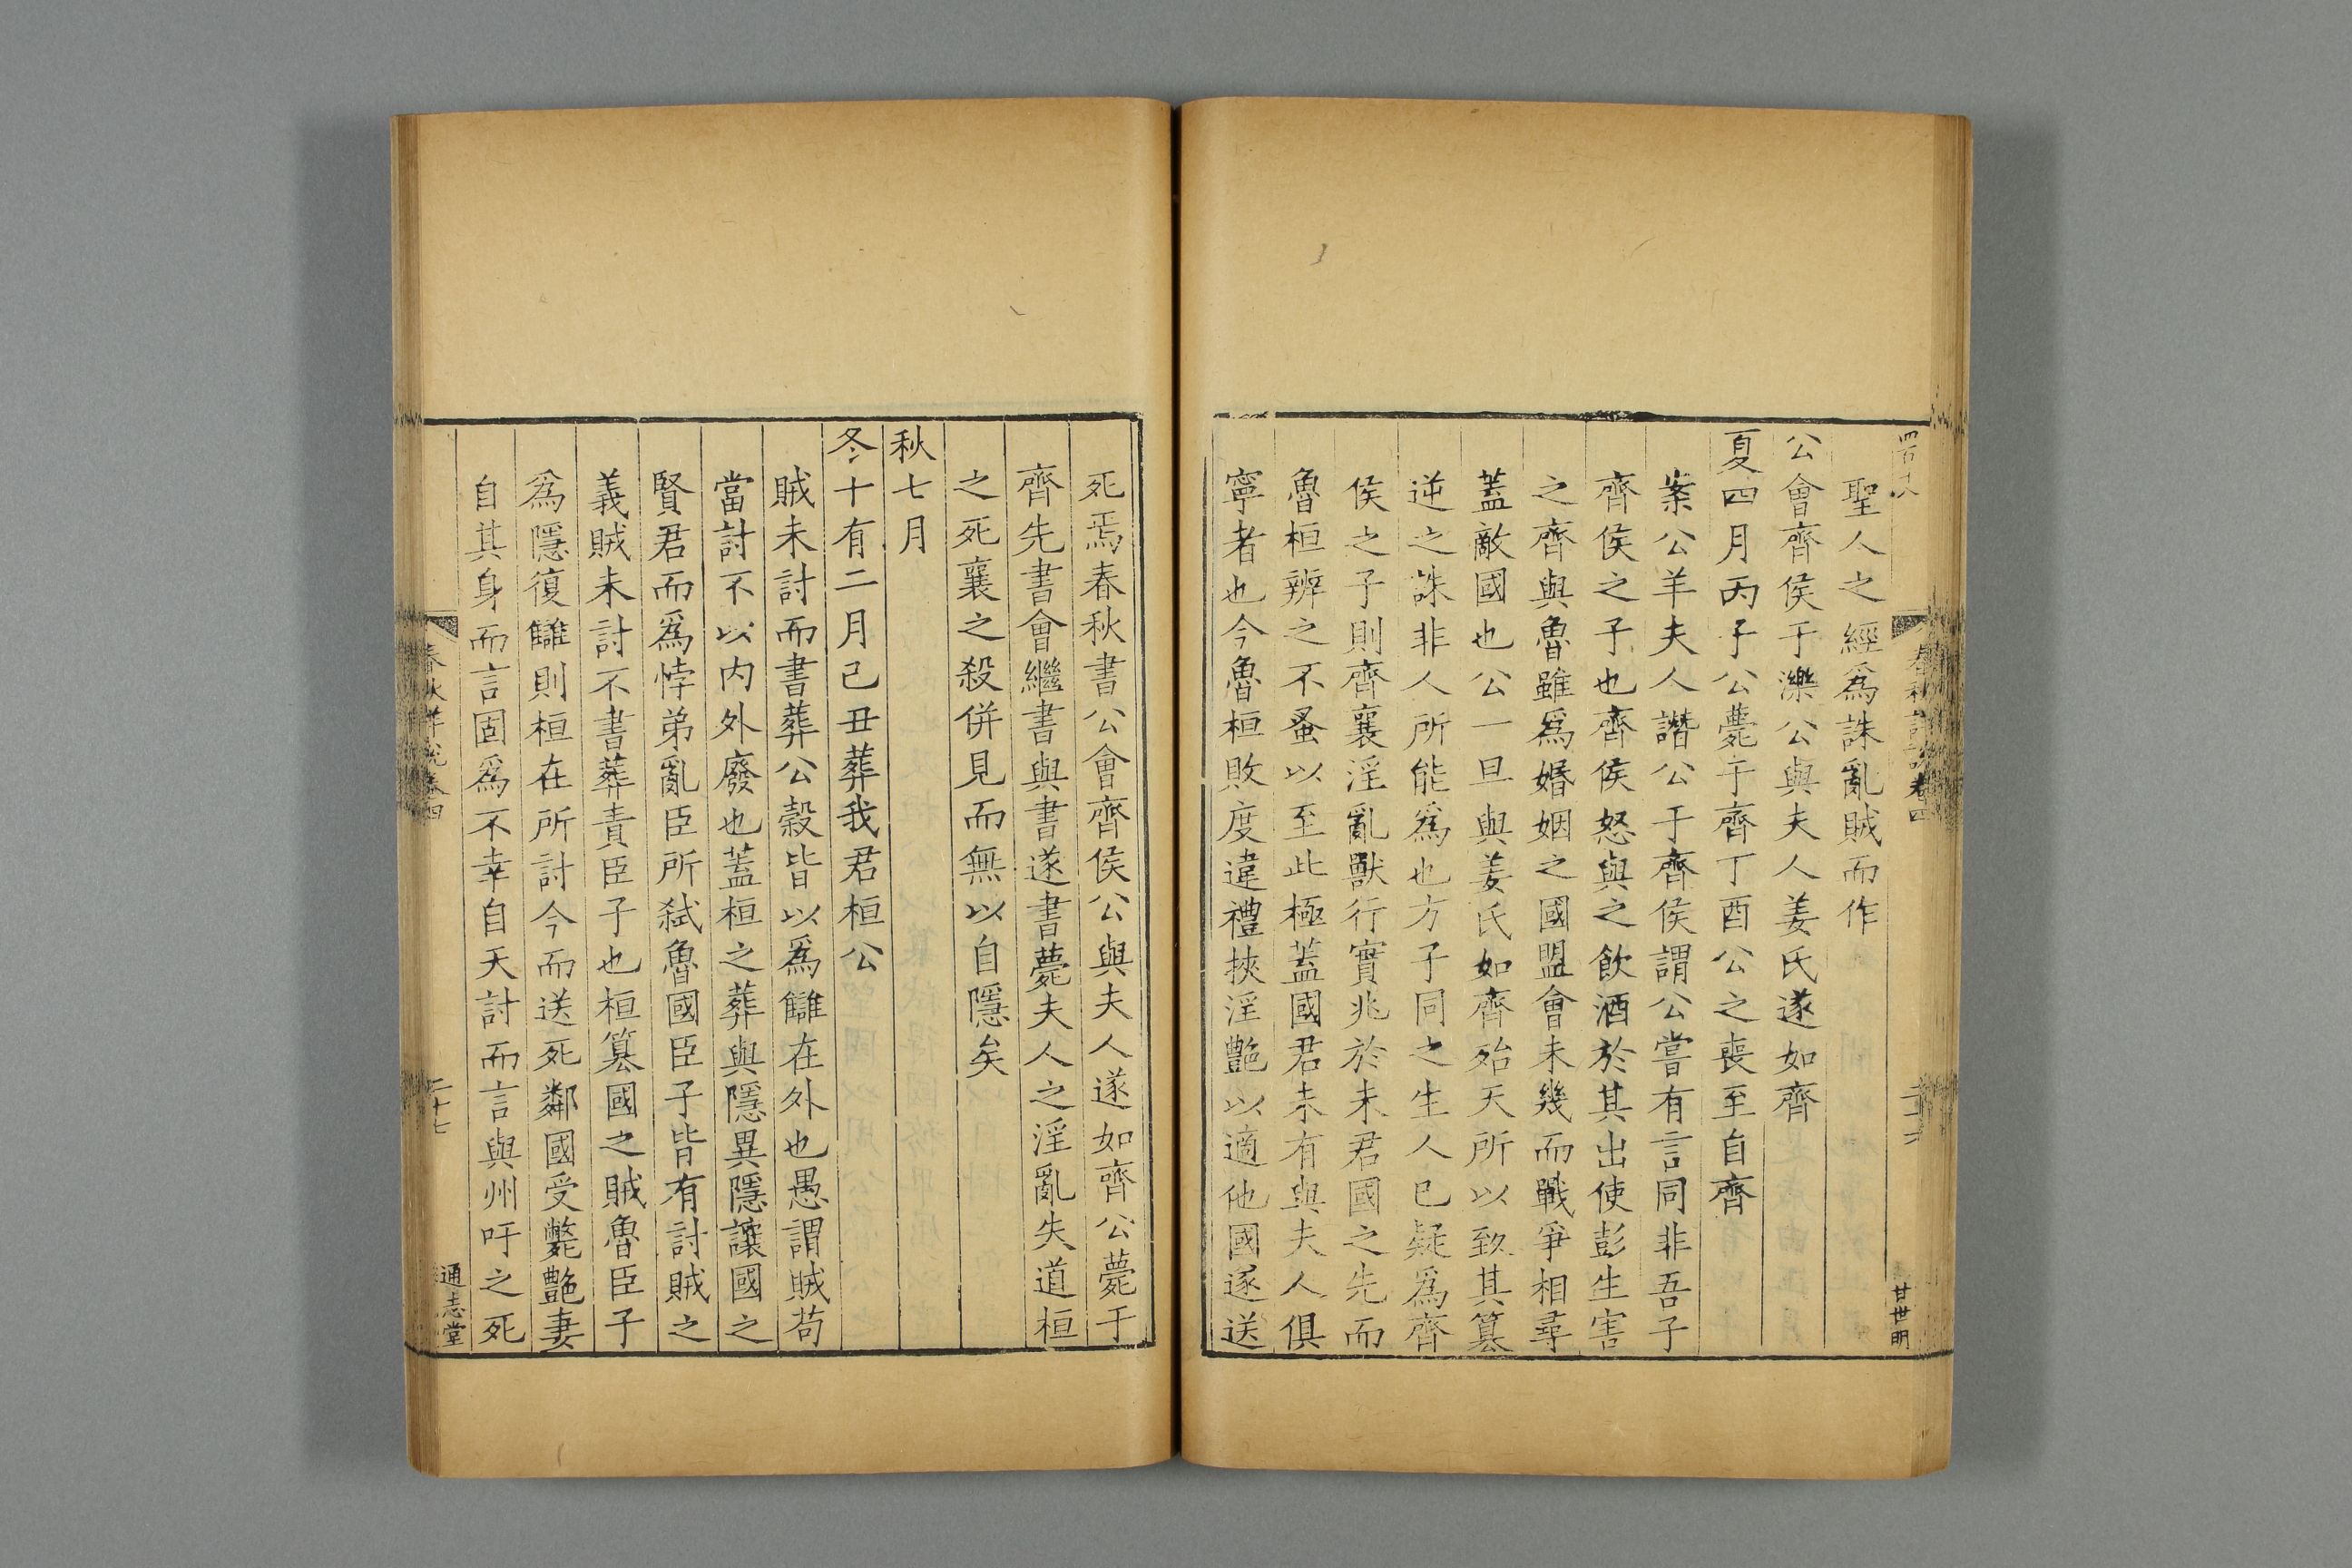 聖人之經爲誅亂賊而作
公會齊侯于濼公與夫人姜氏遂如齊
夏四月丙子公薨于齊丁酉公之喪至自齊
案公羊夫人譖公于齊侯謂公嘗有言同非吾子
齊侯之子也齊侯怒與之飲酒於其出使彭生害
之齊與魯雖爲婚姻之國盟會未幾而戰爭相尋
蓋敵國也公一旦與姜氏如齊殆天所以致其篡
逆之誅非人所能爲也方子同之生人已疑爲齊
侯之子則齊襄淫亂獸行實兆於未君國之先而
魯桓辨之不蚤以至此極蓋國君未有與夫人俱
寧者也今魯桓敗度違禮挾淫艶以適他國遂送
甘世明
死焉春秋書公會齊侯公與夫人遂如齊公薨于
齊先書會繼書與書遂書薨夫人之淫亂失道桓
之死襄之殺併見而無以自隱矣
秋七月
冬十有二月己丑葬我君桓公
賊未討而書葬公穀皆以爲讎在外也愚謂賊苟
當討不以内外廢也蓋桓之葬與隱異隱讓國之
賢君而爲悖弟亂臣所弑魯國臣子皆有討賊之
義賊未討不書葬責臣子也桓篡國之賊魯臣子
爲隱復讎則桓在所討今而送死鄰國受斃艶妻
自其身而言固爲不幸自天討而言與州吁之死
春秋詳說卷四
二十七
通志堂